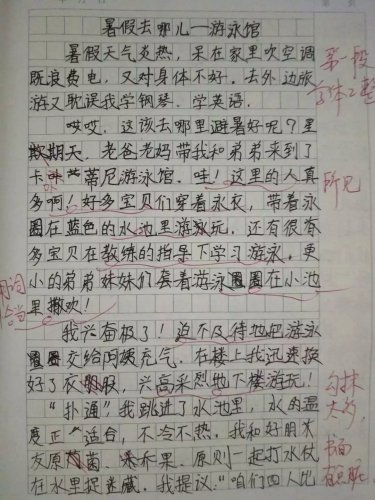 暑假去哪儿—游泳馆
暑假天气炎热，呆在家里吹空调
既浪费电，又对身体不好。去外边旅
游又耽误我学钢琴、学英语。
哎哎，这该去哪里避暑好呢？星
期天，老爸老妈带我和弟弟来到了
卡蒂尼游泳馆。哇！这里的人真
多啊！好多宝贝们穿着泳衣，带着泳
圈在蓝色的水池里游泳玩。还有很有
多宝贝在教练的指导下学习游泳。更
小的弟弟妹妹们套着游泳圈在小池
里撒欢！
我兴奋极了！迫不及待地把游泳
圈交给阿姨充气。在楼上我迅速换
好了衣服，兴高采烈地下楼游玩！
“扑通”我跳进了水池里，水的温
度正适合，不冷不热。我和好朋友
友原菌、乔果、原则一起打水仗
在水里捉迷藏。我提议：“咱们四人比
第一段
字体工整
所见
用词
恰当
勾抹
太多
书面